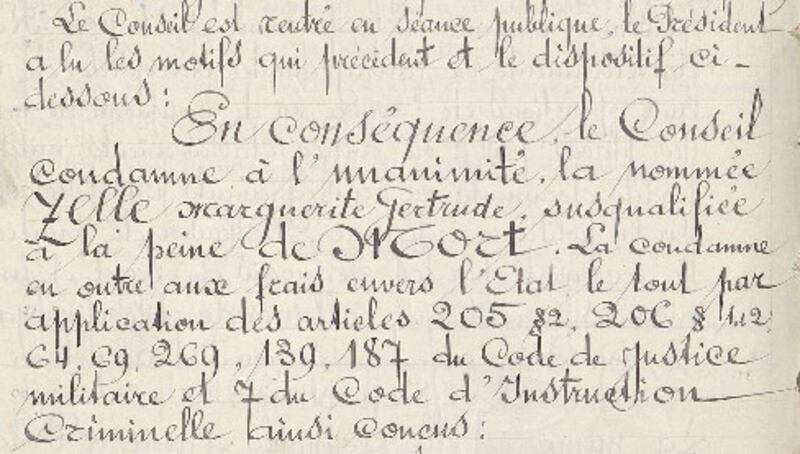 Le Conseil est rentré en séance publique, le Président
a lu les motifs qui précédent et le dispositif ci-
dessous :
En conséquence, le Conseil
condamne à l'unanimité, la nommée
Zelle Marguerite Gertrude, susqualifiée
à la peine de Mort. La condamne
en outre aux frais envers l'Etat le tout par
application des articles 205 §2, 206 § 1.2
64, 69, 269, 139, 187 du Code de Justice
militaire et 7 du Code d'Instruction
Criminelle ainsi concus :